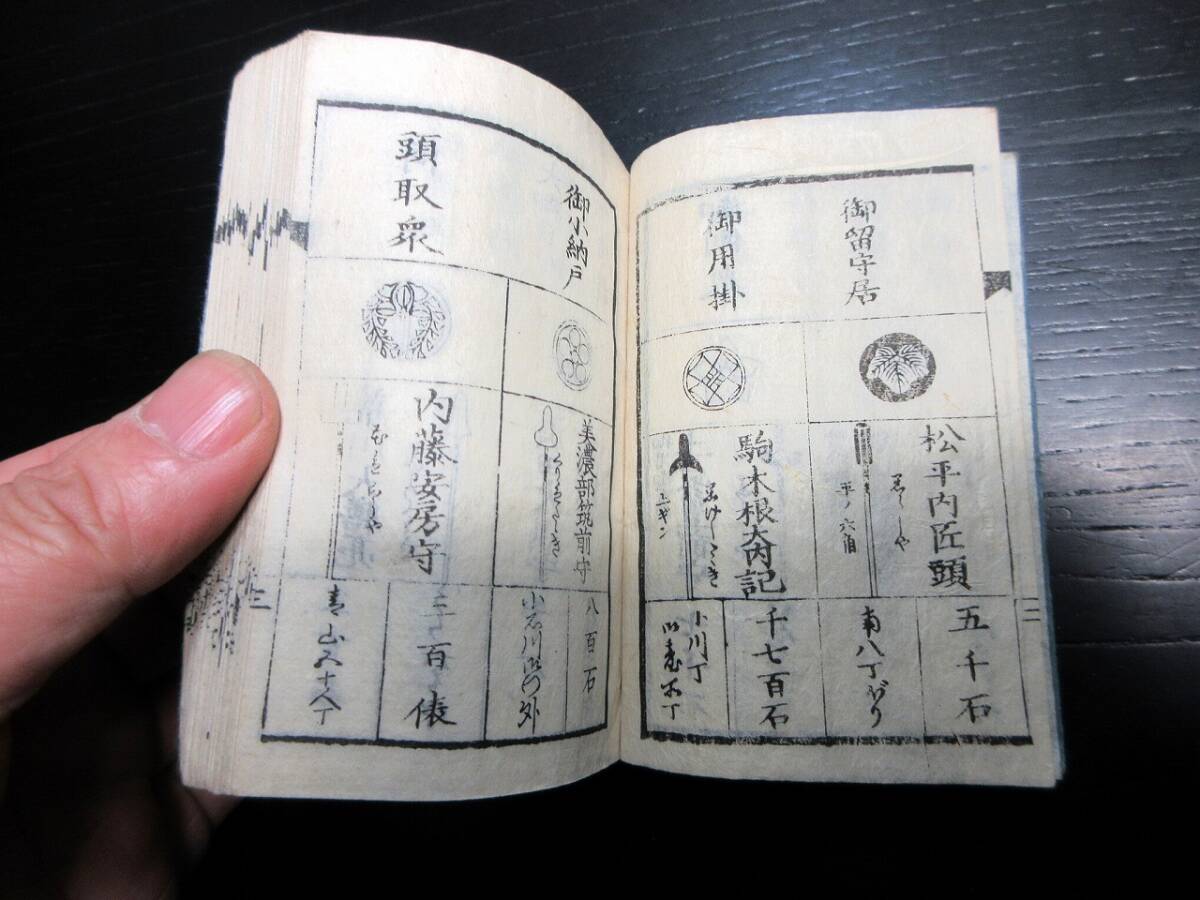 御留守居
松平内匠頭
平ノ六角
五千石
南八丁ぼり
御用掛
駒木根大内記
千七百石
小川丁
御小納戸
美濃部筑前守
八百石
小石川御門外
頭取衆
内藤安房守
百俵
青山五十人丁
二
三